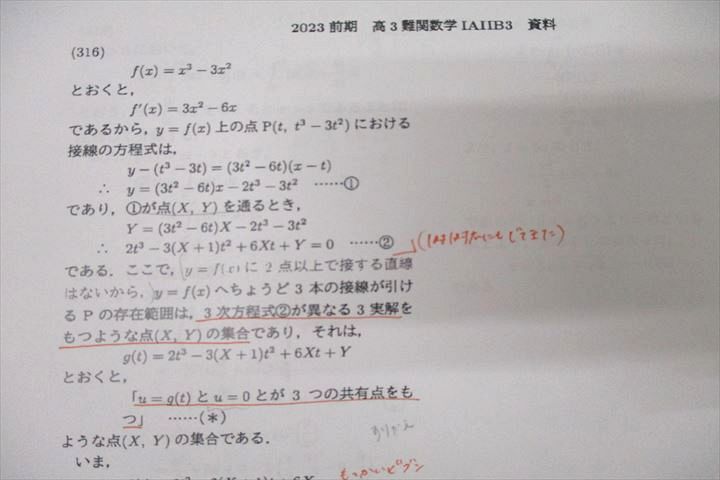 2023 前期 高3難関数学IAIIB3 資料
(316)
f(x) = x³ − 3x²
とおくと,
f′(x) = 3x² − 6x
であるから, y = f(x) 上の点 P(t, t³ − 3t²) における
接線の方程式は,
y − (t³ − 3t) = (3t² − 6t)(x − t)
∴ y = (3t² − 6t)x − 2t³ − 3t² ……①
であり, ①が点(X, Y) を通るとき,
Y = (3t² − 6t)X − 2t³ − 3t²
∴ 2t³ − 3(X + 1)t² + 6Xt + Y = 0 ……②
である. ここで, y = f(x) に 2 点以上で接する直線
はないから, y = f(x) へちょうど 3 本の接線が引け
る P の存在範囲は, 3 次方程式②が異なる 3 実解を
もつような点(X, Y) の集合であり, それは,
g(t) = 2t³ − 3(X + 1)t² + 6Xt + Y
とおくと,
「u = g(t) と u = 0 とが 3 つの共有点をも
つ」 ……(∗)
ような点(X, Y) の集合である.
いま,